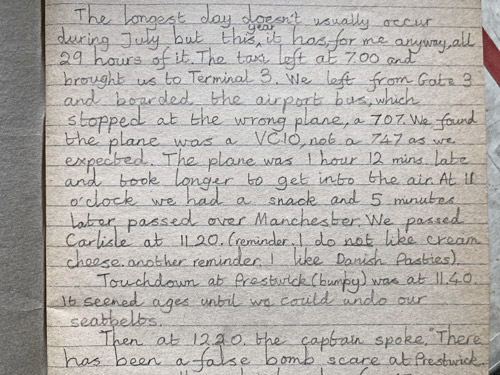 The longest day doesn't usually occur
year
during July but this, it has, for me anyway, all
29 hours of it. The taxi left at 7.00 and
brought us to Terminal 3. We left from Gate 3
and boarded the airport bus, which
stopped at the wrong plane, a 707. We found
the plane was a VC10, not a 747 as we
expected. The plane was 1 hour 12 mins. late
and took longer to get into the air. At 11
o'clock we had a snack and 5 minutes
later passed over Manchester. We passed
Carlisle at 11.20. (reminder. I do not like cream
cheese. another reminder. I like Danish Pasties).
Touchdown at Prestwick (bumpy) was at 11.40.
It seemed ages until we could undo our
seatbelts.
Then at 12.20. the captain spoke. "There
has been a false bomb scare at Prestwick.